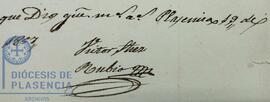 que Dios gue. m. a. Plasencia 19 de
Victor Saez
Rubio
DIÓCESIS DE
PLASENCIA
ARCHIVOS